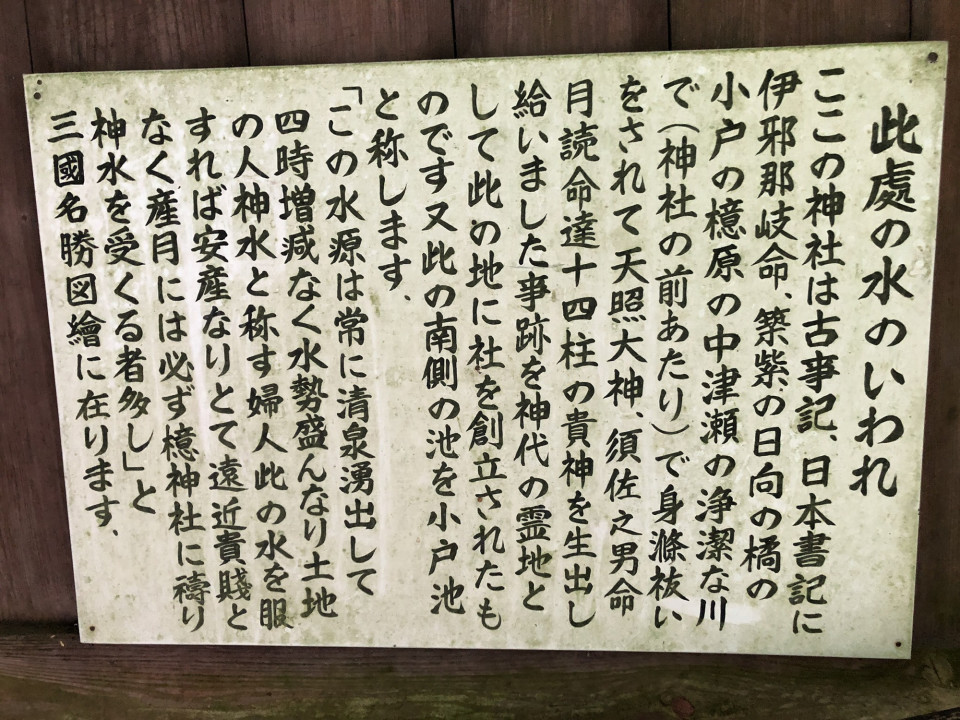 此處の水のいわれ
ここの神社は古事記、日本書記に
伊邪那岐命、築紫の日向の橘の
小戸の檍原の中津瀬の浄潔な川
で(神社の前あたり)で身滌祓い
をされて天照大神、須佐之男命
月読命達十四柱の貴神を生出し
給いました事跡を神代の霊地と
して此の地に社を創立されたも
のです又此の南側の池を小戸池
と称します.
「この水源は常に清泉湧出して
四時増減なく水勢盛んなり土地
の人神水と称す婦人此の水を服
すれば安産なりとて遠近貴賤と
なく産月には必ず檍神社に禱り
神水を受くる者多し」と
三國名勝図繪に在ります.